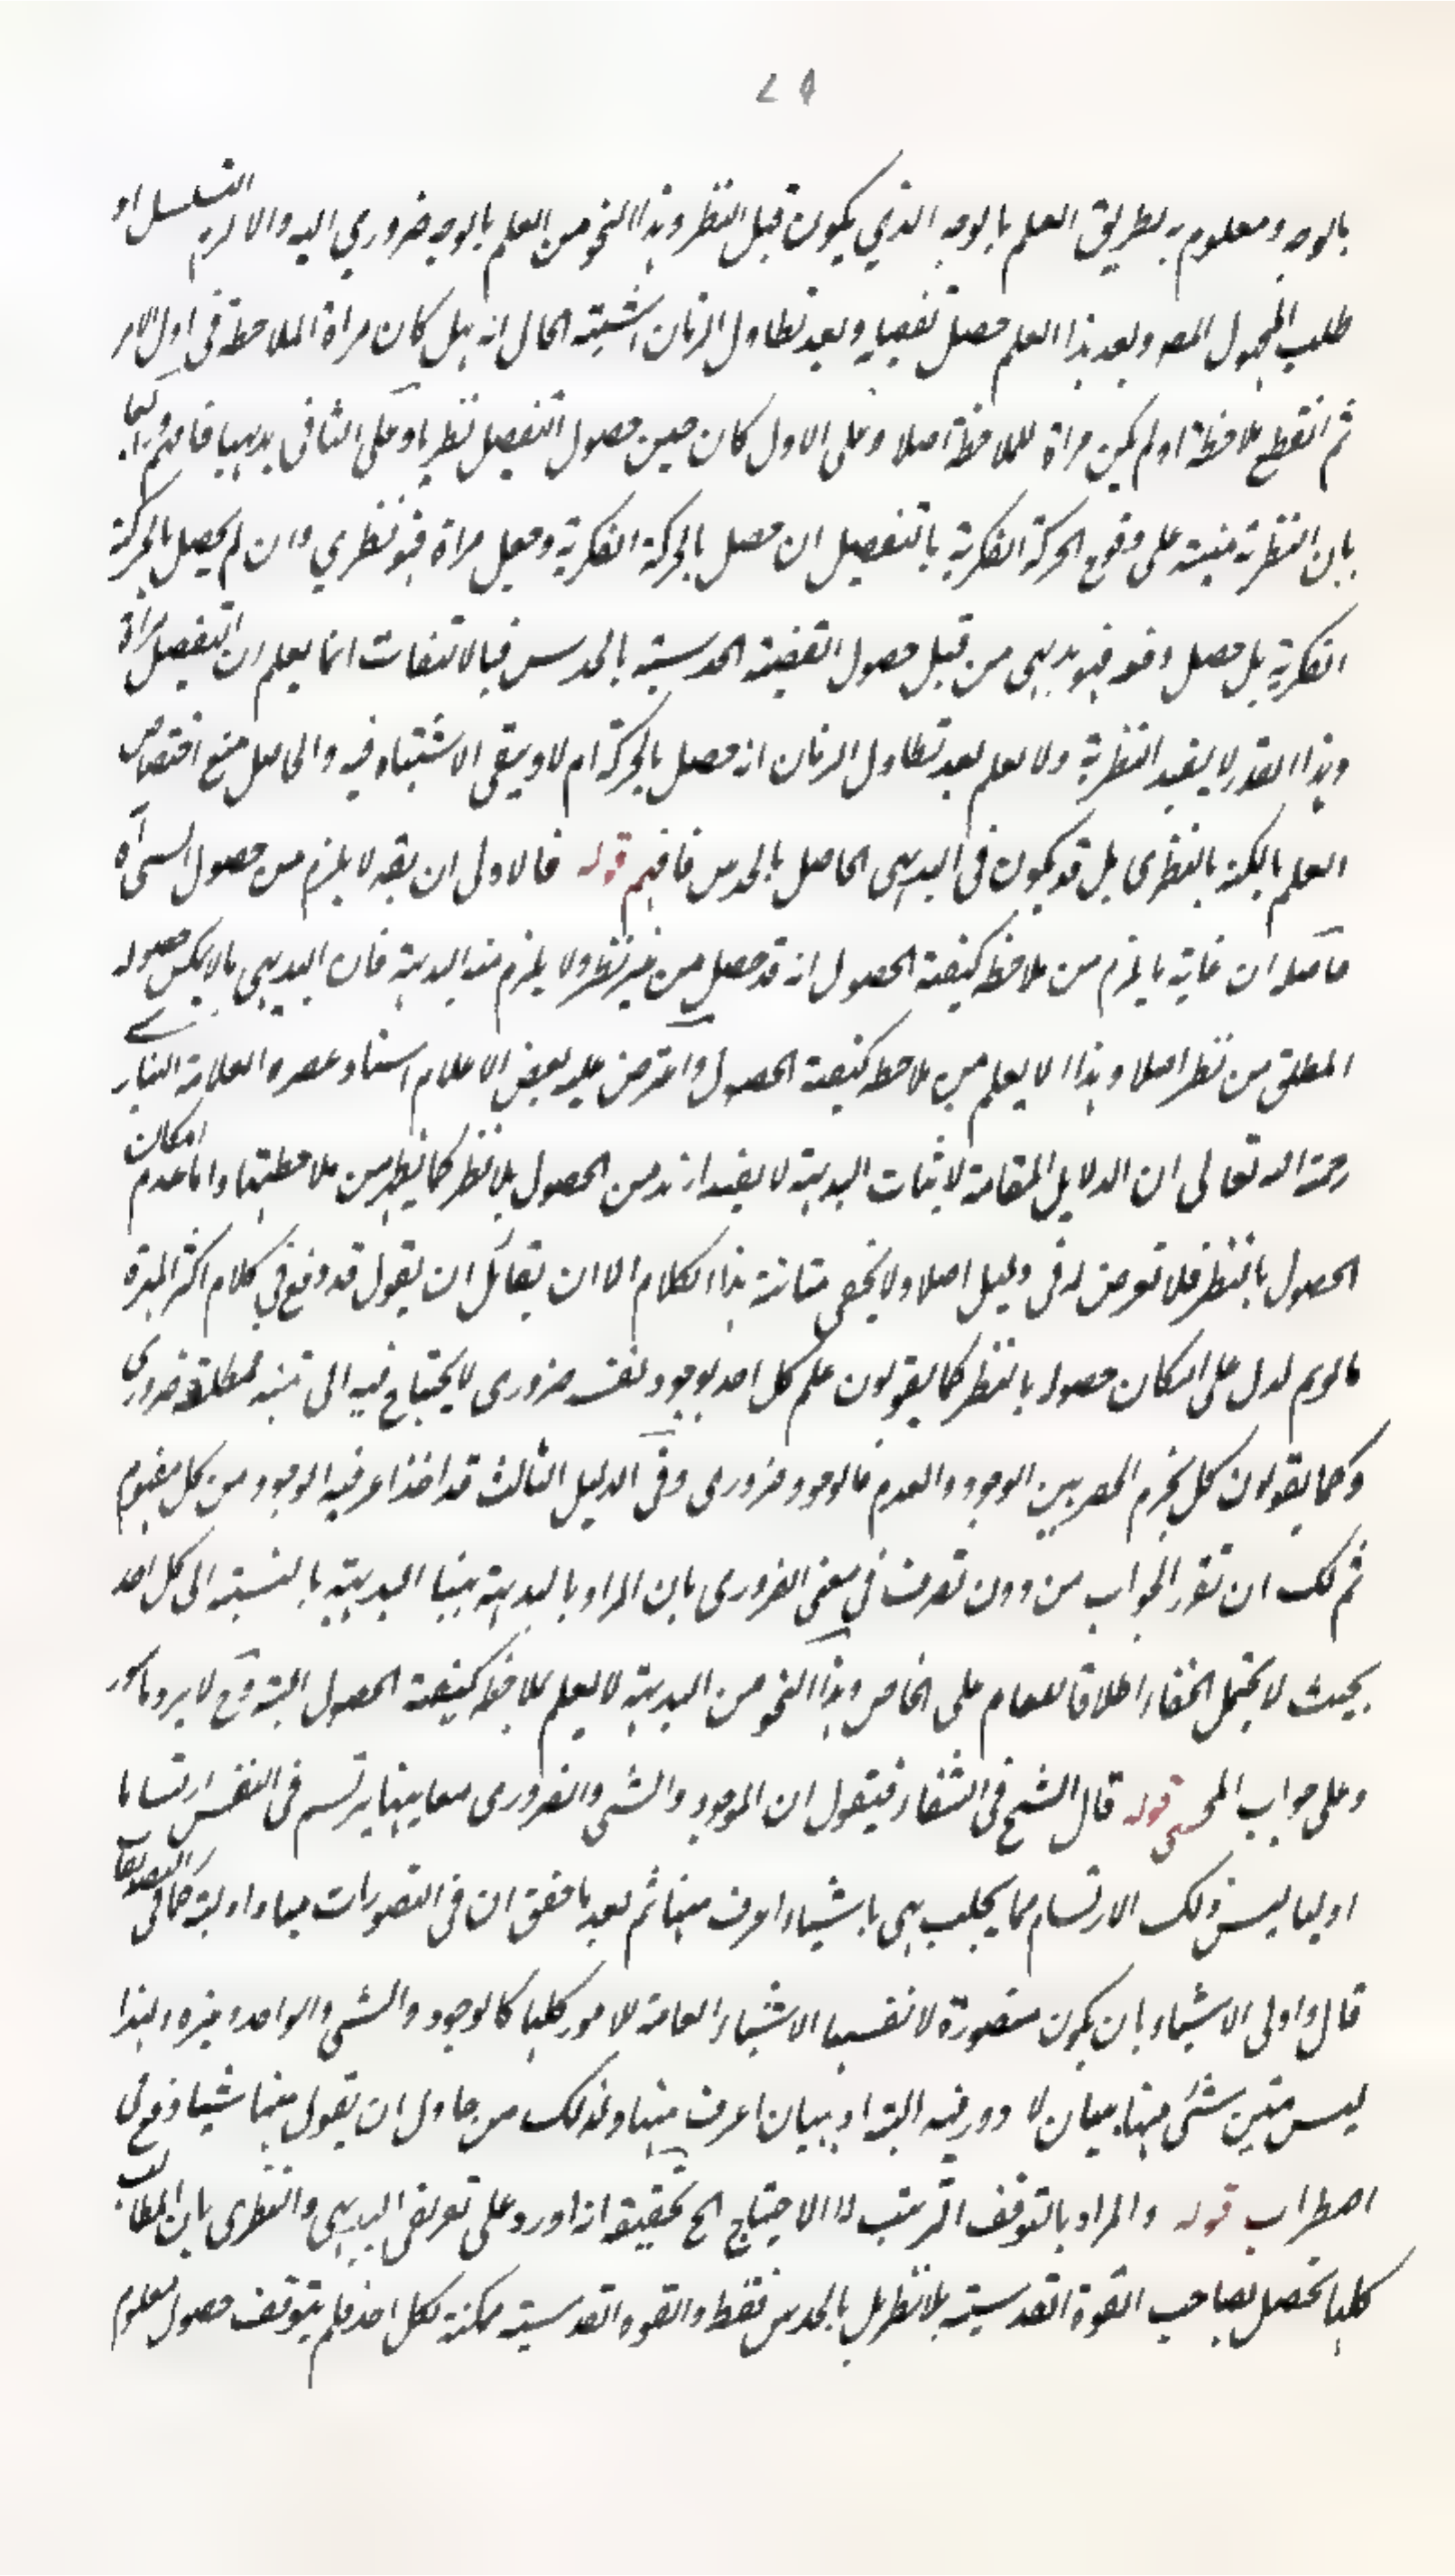 ٢٩
بالوجه ومعلوم به بطريق العلم بالوجه الذي يكون قبل النظر وهذا النحو من العلم بالوجه ضروري اليه والا لزم التسلسل او
طلب المجهول المص وبعد هذا العلم حصل تفصيله وبعد تطاول الزمان اشتبه الحال انه هل كان مراة الملاحظة في اول الامر
ثم انقطع ملاحظة او لم يكن مراة للملاحظة اصلا وعلى الاول كان حين حصول التفصيل نظريا وعلى الثاني بديهيا فافهم
بان النظرية مبنية على وقوع الحركة الفكرية بالتفصيل ان حصل بالحركة الفكرية وجعل مراة فهو نظري وان لم يحصل بالحركة
الفكرية بل حصل دفعة فهو بديهي من قبل حصول القضية الحدسية بالحدس فبالالتفات انما يعلم ان التفصيل مراة
وهذا القدر لا يفيد النظرية ولا يعلم بعد تطاول الزمان انه حصل بالحركة ام لا ويبقى الاشتباه فيه والحاصل منع اختصاص
العلم بالكنه بالنظرى بل قد يكون في البديهى الحاصل بالحدس فافهم قوله فالاولى ان يقه لا يلزم من حصول الشئ آه
حاصله ان غاية ما يلزم من ملاحظة كيفية الحصول انه قد حصل من غير نظر ولا يلزم منه البديهة فان البديهي ما لا يمكن حصوله
المطلق من نظر اصلا وهذا لا يعلم من ملاحظة كيفية الحصول واعترض عليه بعض الاعلام استاد عصره العلامة
رحمة الله تعالى ان الدلايل المقامة لاثبات البديهة لا يفيد ازيد من الحصول بلا نظر كما يظهر من ملاحظتها واما عدم امكان
الحصول بالنظر فلا تعرض له في دليل اصلا ولا يخفى متانة هذا الكلام الا ان يقال ان يقول قد وقع في كلام اكثر المهرة
ما لو تم لدل على امكان حصوله بالنظر كما يقولون علم كل احد بوجود نفسه ضرورى لا يحتاج فيه الى تنبيه فمطلقه ضروري
وكما يقولون كل يجزم الحصر بين الوجود والعدم فالوجود ضرورى وفى الدليل الثالث قد اخذ اعرفية الوجود من كل مفهوم
ثم لك ان تقرر الجواب من دون تصرف في معنى الضرورى بان المراد بالبديهة ههنا البديهية بالنسبة الى كل احد
بحيث لا يحتمل الخفاء اطلاقا للعام على الخاص وهذا النحو من البديهة لا يعلم بملاحظة كيفية الحصول البتة وح لا يرد ما اورد
وعلى جواب المحشى قوله قال الشيخ في الشفاء فيقول ان الموجود والشئ والضرورى معانيها يرتسم فى النفس ارتساما
اوليا ليس ذلك الارتسام مما يجلب هى باشياء اعرف منها ثم بعد ما حقق ان في التصورات مبادئ اولية كما في التصديقات
قال واولى الاشياء بان يكون متصورة لانفسها الاشياء العامة للامور كلها كالوجود والشئ والواحد وغيره ولهذا
ليس يتبين شئ منها ببيان لا دور فيه البتة او ببيان اعرف منها ولذلك من حاول ان يقول فيها شيئا وقع في
اضطراب قوله والمراد بالتوقف الترتب لا الاحتياج الخ تحقيقه انه اورد على تعريفى البديهى والنظرى بان المطالب
كلها تحصل لصاحب القوة القدسية بلا نظر بل بالحدس فقط والقوة القدسية ممكنة لكل احد فلم يتوقف حصول معلوم